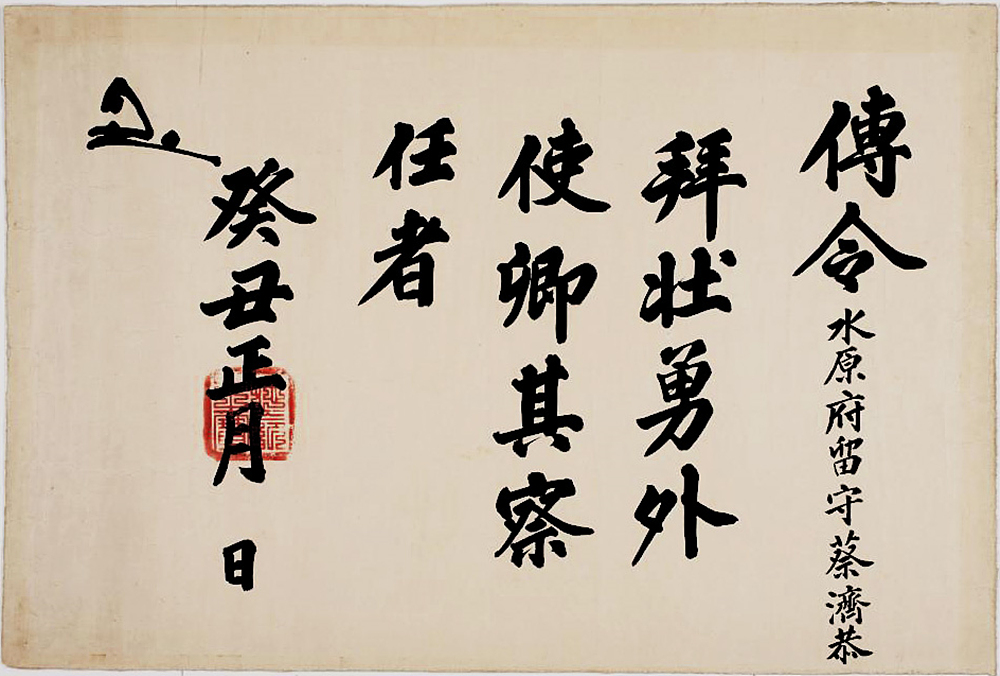 傳令水原府留守蔡濟恭
拜壯勇外
使卿其察
任者
癸丑正月 日